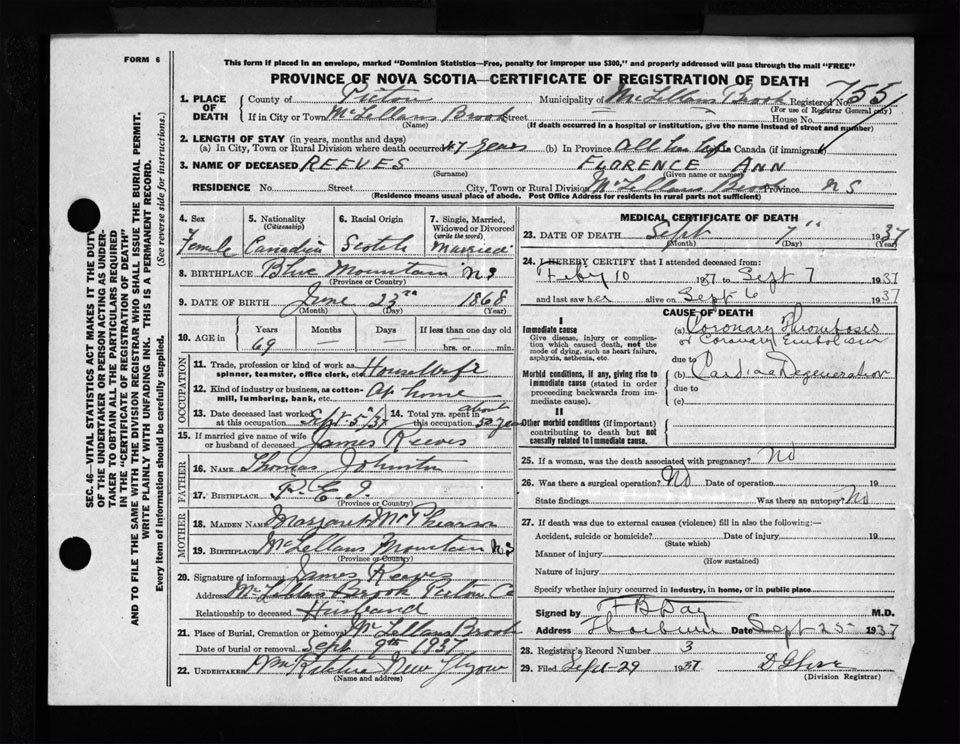 FORM 6
This form if placed in an envelope, marked "Dominion Statistics—Free, penalty for improper use $300," and properly addressed will pass through the mail "FREE"
PROVINCE OF NOVA SCOTIA—CERTIFICATE OF REGISTRATION OF DEATH
1. PLACE OF DEATH
County of Pictou Municipality of McLellans Brook Registered No. 755
(For use of Registrar General only)
If in City or Town McLellans Brook Street House No.
(Name) (If death occurred in a hospital or institution, give the name instead of street and number)
2. LENGTH OF STAY (in years, months and days)
(a) In City, Town or Rural Division where death occurred 47 years (b) In Province All her life In Canada (if immigrant)
3. NAME OF DECEASED REEVES FLORENCE ANN
(Surname) (Given name or names)
RESIDENCE No. Street City, Town or Rural Division McLellans Brook Province N S
(Residence means usual place of abode. Post Office Address for residents in rural parts not sufficient)
4. Sex Female
5. Nationality (Citizenship) Canadian
6. Racial Origin Scotch
7. Single, Married, Widowed or Divorced (write the word) Married
8. BIRTHPLACE Blue Mountain N.S
(Province or Country)
9. DATE OF BIRTH June 23rd 1868
(Month) (Day) (Year)
10. AGE in Years 69 Months — Days — If less than one day old
hrs. or min.
OCCUPATION
11. Trade, profession or kind of work as spinner, teamster, office clerk, etc. Housewife
12. Kind of industry or business, as cotton-mill, lumbering, bank, etc. At home
13. Date deceased last worked at this occupation Sept 5th/37
14. Total yrs. spent in this occupation about 50 years
15. If married give name of wife or husband of deceased James Reeves
FATHER
16. NAME Thomas Johnston
17. BIRTHPLACE P.E.I.
(Province or Country)
MOTHER
18. MAIDEN NAME Margaret McPhearson
19. BIRTHPLACE McLellans Mountain N.S
(Province or Country)
20. Signature of informant James Reeves
Address McLellans Brook Pictou Co
Relationship to deceased Husband
21. Place of Burial, Cremation or Removal McLellans Brook
Date of burial or removal Sept 9th 1937
22. UNDERTAKER New Glasgow
(Name and address)
MEDICAL CERTIFICATE OF DEATH
23. DATE OF DEATH Sept 7" 1937
(Month) (Day) (Year)
24. I HEREBY CERTIFY that I attended deceased from:
Feby 10 1937 to Sept 7 1937
and last saw her alive on Sept 6 1937
CAUSE OF DEATH
I
Immediate cause
Give disease, injury or complication which caused death, not the mode of dying, such as heart failure, asphyxia, asthenia, etc.
(a) Coronary Thrombosis
or Coronary Embolism
due to
Morbid conditions, if any, giving rise to immediate cause (stated in order proceeding backwards from immediate cause).
(b) Cardiac Degeneration
due to
(c)
II
Other morbid conditions (if important) contributing to death but not causally related to immediate cause.
25. If a woman, was the death associated with pregnancy? No
26. Was there a surgical operation? No Date of operation 19
State findings Was there an autopsy? No
27. If death was due to external causes (violence) fill in also the following:—
Accident, suicide or homicide? Date of injury 19
(State which)
Manner of injury
(How sustained)
Nature of injury
Specify whether injury occurred in industry, in home, or in public place
Signed by F B Day M.D.
Address Thorburn Date Sept 25 1937
28. Registrar's Record Number 3
29. Filed Sept 29 1937
(Division Registrar)
SEC. 46—VITAL STATISTICS ACT MAKES IT THE DUTY
OF THE UNDERTAKER OR PERSON ACTING AS UNDER-
TAKER TO OBTAIN ALL THE PARTICULARS REQUIRED
IN THE "CERTIFICATE OF REGISTRATION OF DEATH"
AND TO FILE THE SAME WITH THE DIVISION REGISTRAR WHO SHALL ISSUE THE BURIAL PERMIT.
WRITE PLAINLY WITH UNFADING INK. THIS IS A PERMANENT RECORD.
Every item of information should be carefully supplied. (See reverse side for instructions.)